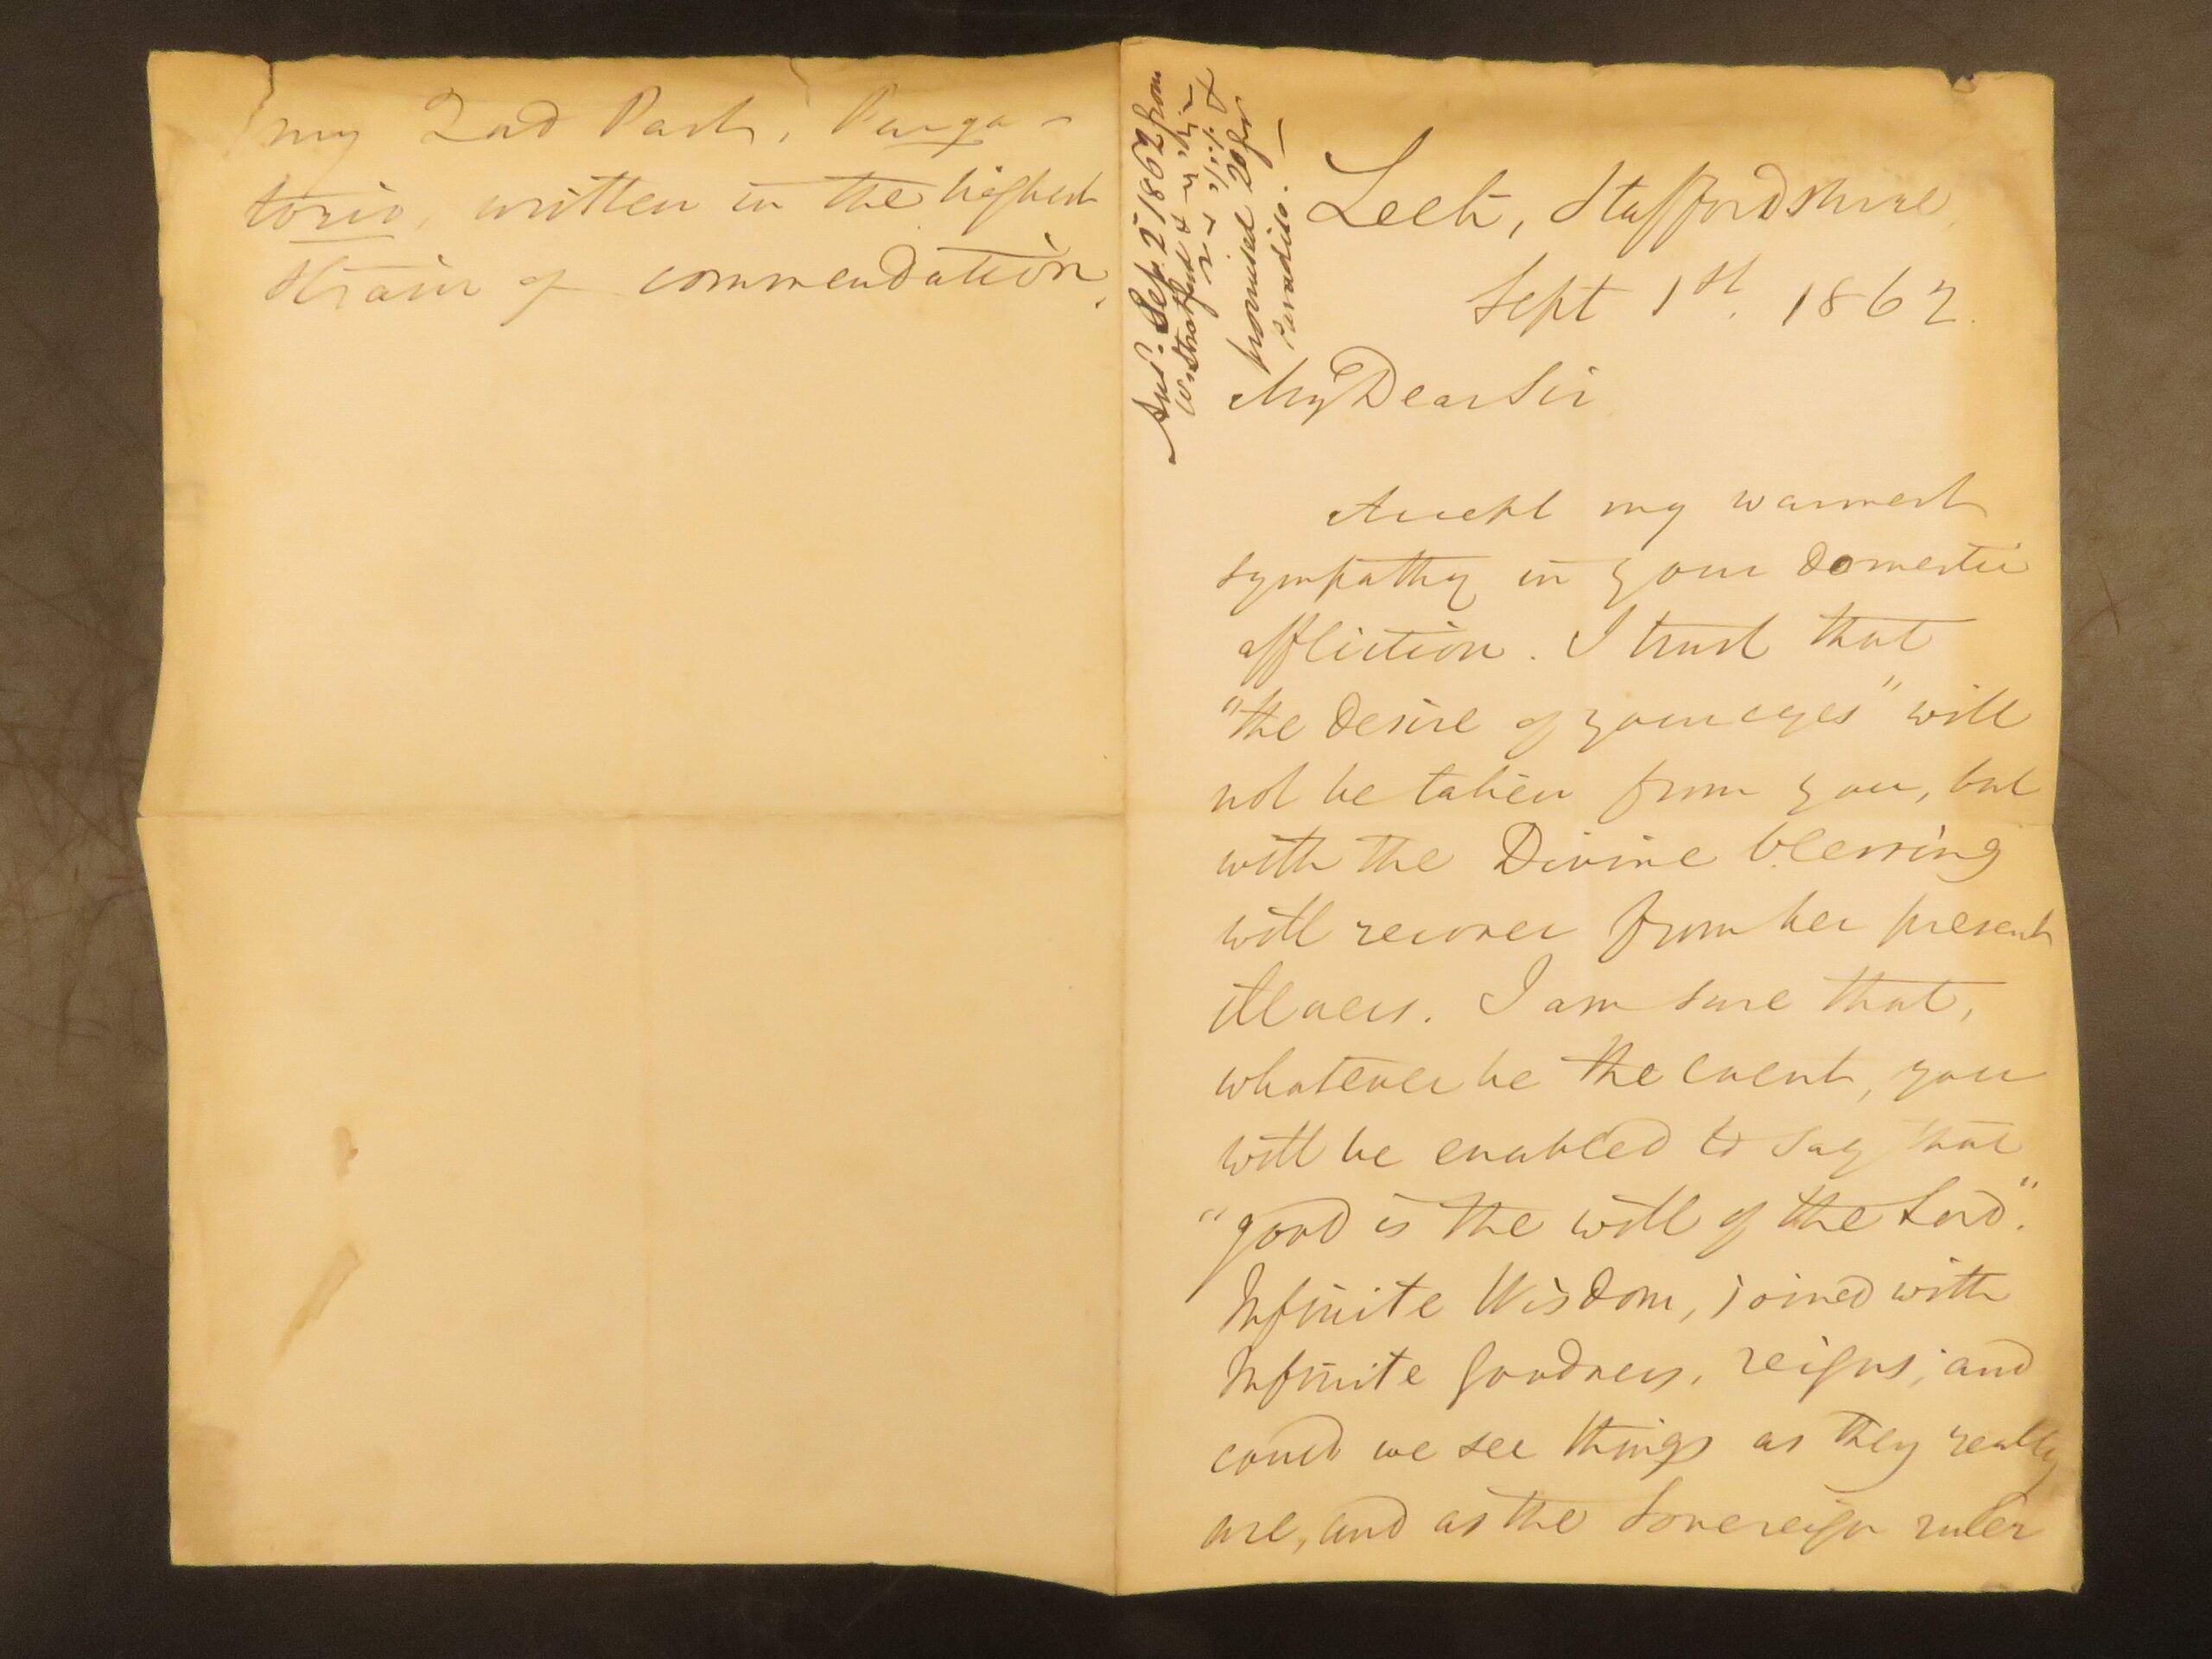 my 2nd Part, Purga-
torio, written in the highest
strain of commendation.
Ansd. Sep. 2 1862 from
W. Stratford &
promised 20 for
Paradiso. —
Leek, Staffordshire,
Sept 1st. 1862.
My Dear Sir
Accept my warmest
sympathy in your domestic
affliction. I trust that
"the desire of your eyes" will
not be taken from you, but
with the Divine blessing
will recover from her present
illness. I am sure that,
whatever be the event, you
will be enabled to say that
"good is the will of the Lord".
Infinite Wisdom, joined with
Infinite Goodness, reigns; and
could we see things as they really
are, and as the Sovereign ruler